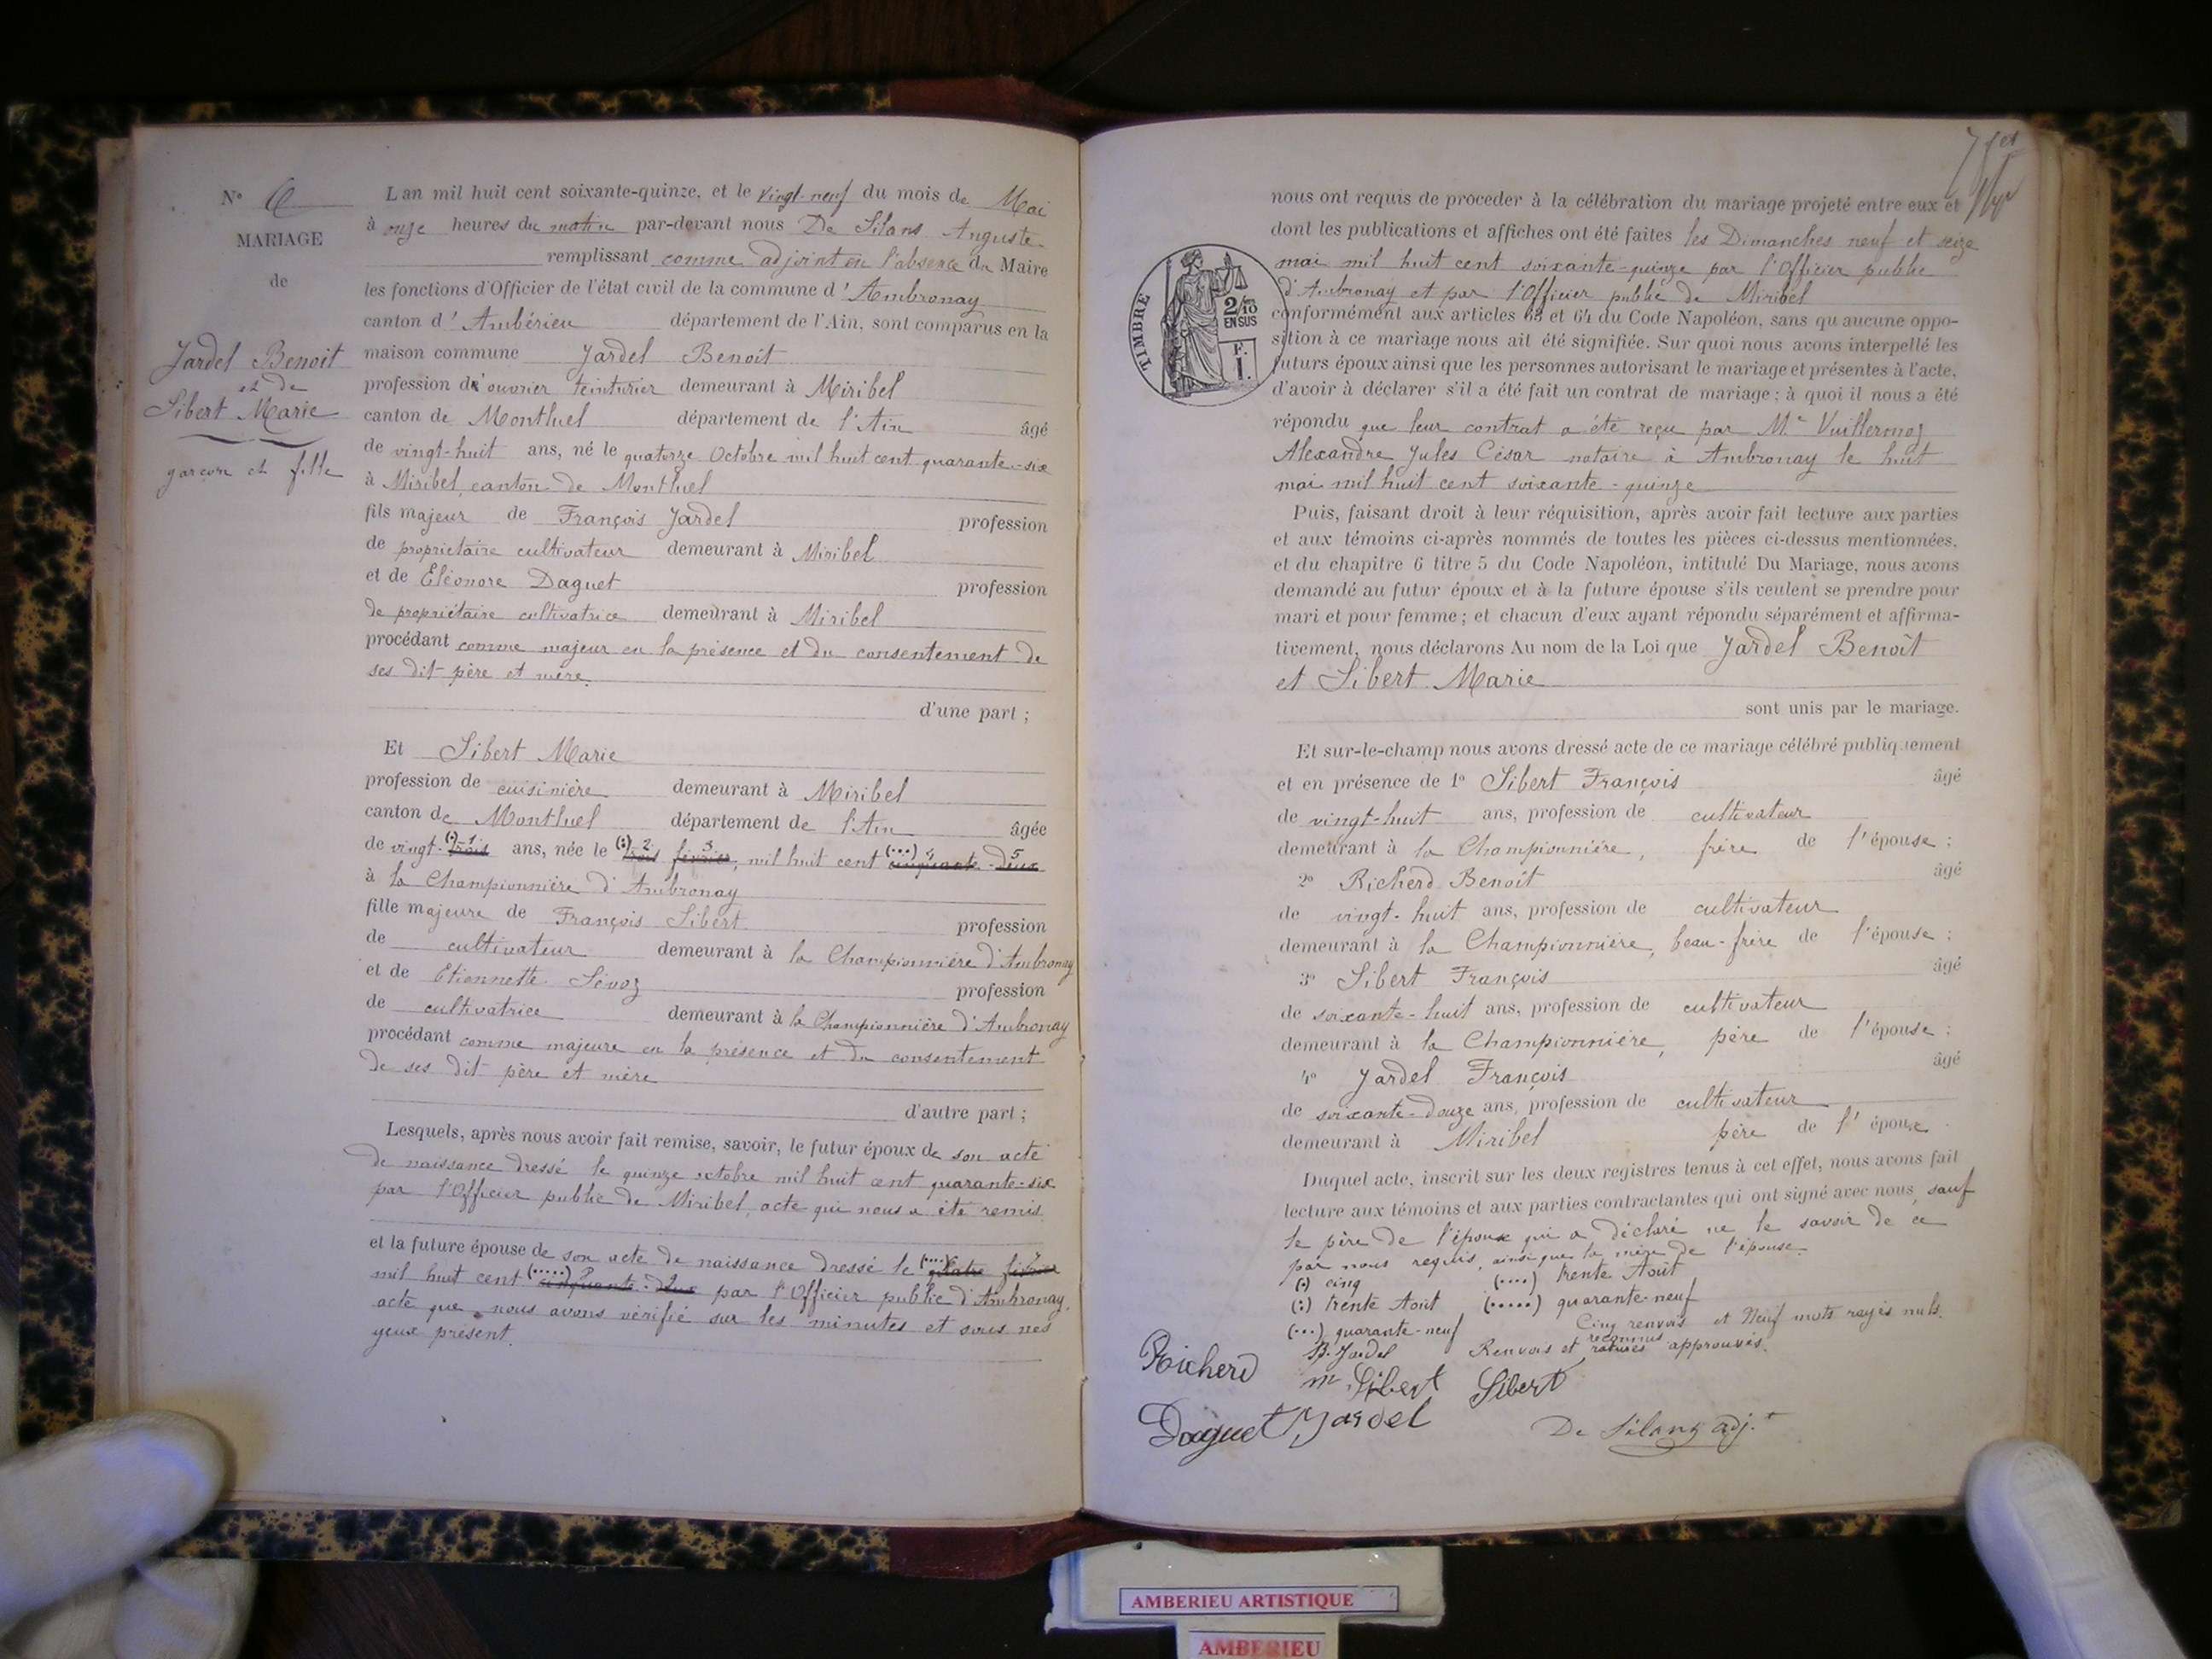 N° 6
MARIAGE
de
Jardel Benoit
et de
Sibert Marie
garçon et fille
L an mil huit cent soixante-quinze, et le vingt-neuf du mois de Mai
à onze heures du matin par-devant nous De Silans Auguste
remplissant comme adjoint en l'absence du Maire
les fonctions d'Officier de l'état civil de la commune d'Ambronay
canton d'Ambérieu département de l'Ain, sont comparus en la
maison commune Jardel Benoit
profession d'ouvrier teinturier demeurant à Miribel
canton de Montluel département de l'Ain âgé
de vingt-huit ans, né le quatorze Octobre mil huit cent quarante-six
à Miribel, canton de Montluel
fils majeur de François Jardel profession
de propriétaire cultivateur demeurant à Miribel
et de Eléonore Daguet profession
de propriétaire cultivatrice demeurant à Miribel
procédant comme majeur en la présence et du consentement de
ses dit père et mère
d'une part ;
Et Sibert Marie
profession de cuisinière demeurant à Miribel
canton de Montluel département de l'Ain âgée
de vingt-(.) trois 1 ans, née le (:) trois 2 février 3, mil huit cent (...) cinquante 4 - deux 5
à la Championnière d'Ambronay
fille majeure de François Sibert profession
de cultivateur demeurant à la Championnière d'Ambronay
et de Etiennette Sévoz profession
de cultivatrice demeurant à la Championnière d'Ambronay
procédant comme majeure en la présence et du consentement
de ses dit père et mère
d'autre part ;
Lesquels, après nous avoir fait remise, savoir, le futur époux de son acte
de naissance dressé le quinze octobre mil huit cent quarante-six
par l'Officier public de Miribel, acte qui nous a été remis
et la future épouse de son acte de naissance dressé le (....) quatre février
mil huit cent (.....) cinquante-deux par l'Officier public d'Ambronay,
acte que nous avons vérifié sur les minutes et sous nos
yeux présent.
nous ont requis de proceder à la célébration du mariage projeté entre eux et
dont les publications et affiches ont été faites les Dimanches neuf et seize
mai mil huit cent soixante-quinze par l'Officier public
d'Ambronay et par l'Officier public de Miribel
TIMBRE
2/10
EN SUS
F.
1.
conformément aux articles 63 et 64 du Code Napoléon, sans qu aucune oppo-
sition à ce mariage nous ait été signifiée. Sur quoi nous avons interpellé les
futurs époux ainsi que les personnes autorisant le mariage et présentes à l'acte,
d'avoir à déclarer s'il a été fait un contrat de mariage ; à quoi il nous a été
répondu que leur contrat a été reçu par Me Vuillermoz
Alexandre Jules César notaire à Ambronay le huit
mai mil huit cent soixante-quinze
Puis, faisant droit à leur réquisition, après avoir fait lecture aux parties
et aux témoins ci-après nommés de toutes les pièces ci-dessus mentionnées,
et du chapitre 6 titre 5 du Code Napoléon, intitulé Du Mariage, nous avons
demandé au futur époux et à la future épouse s'ils veulent se prendre pour
mari et pour femme ; et chacun d'eux ayant répondu séparément et affirma-
tivement, nous déclarons Au nom de la Loi que Jardel Benoit
et Sibert Marie
sont unis par le mariage.
Et sur-le-champ nous avons dressé acte de ce mariage célébré publiquement
et en présence de 1° Sibert François âgé
de vingt-huit ans, profession de cultivateur
demeurant à la Championnière, frère de l'épouse ;
2° Richerd Benoit âgé
de vingt-huit ans, profession de cultivateur
demeurant à la Championnière, beau-frère de l'épouse ;
3° Sibert François âgé
de soixante-huit ans, profession de cultivateur
demeurant à la Championnière, père de l'épouse ;
4° Jardel François âgé
de soixante-douze ans, profession de cultivateur
demeurant à Miribel père de l'époux.
Duquel acte, inscrit sur les deux registres tenus à cet effet, nous avons fait
lecture aux témoins et aux parties contractantes qui ont signé avec nous, sauf
le père de l'époux qui a déclaré ne le savoir de ce
par nous requis, ainsi que la mère de l'épouse.
(.) cinq (....) trente Août
(:) trente Août (.....) quarante-neuf
(...) quarante-neuf Cinq renvois et Neuf mots rayés nuls.
B. Jardel Renvois et ratures reconnus approuvés.
Richerd m. Sibert Sibert
Daguet Jardel De Silans adj.t
AMBERIEU ARTISTIQUE
AMBERIEU